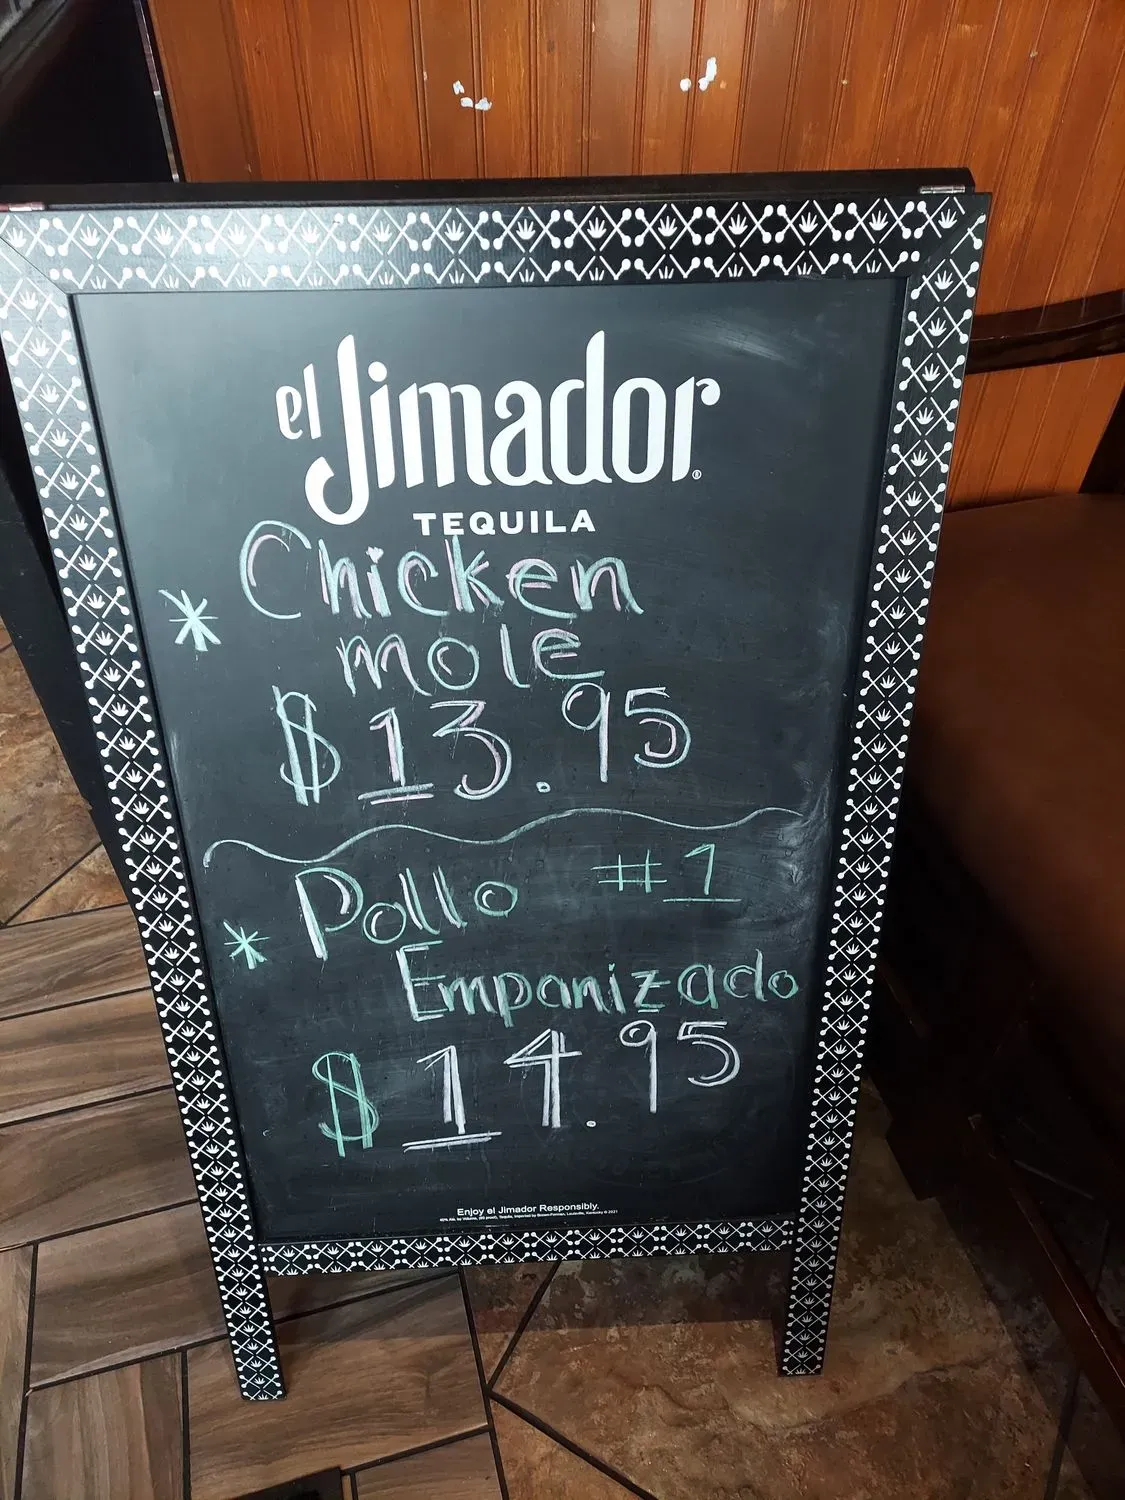 el Jimador®
TEQUILA
* Chicken
mole
$ 13.95
* Pollo #1
Empanizado
$ 14.95
Enjoy el Jimador Responsibly.